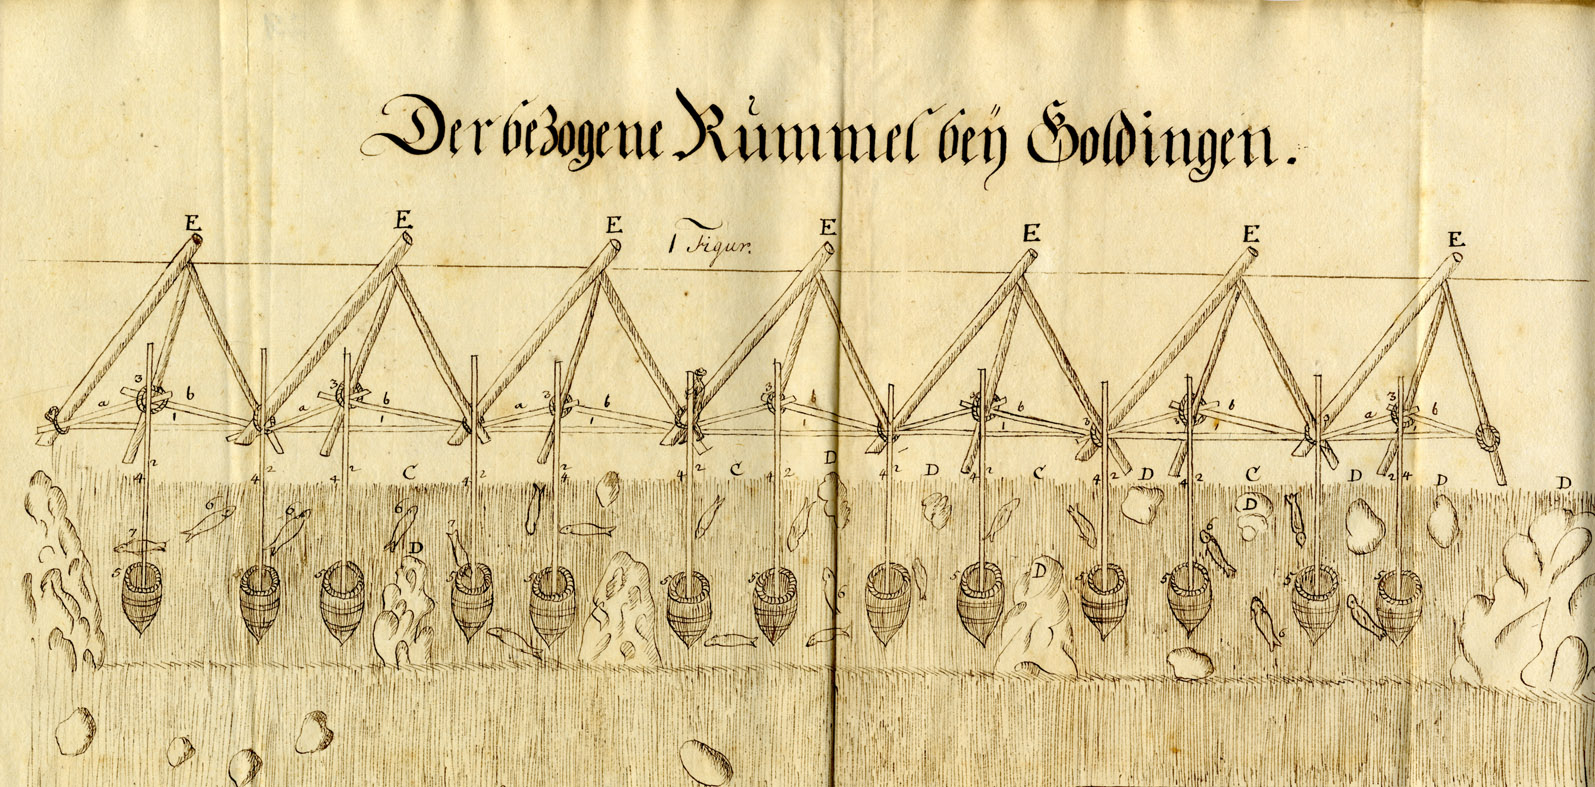 Der bezogene Rummel beÿ Goldingen.
E E E 1 Figur. E E E E
3 3 3 3 3 3
a b a b a b b b b a b
1 1 1 1 1 1
2 2 2 2 2 2 2 2 2 2 2
4 4 4 4 4 4 4 4 4 4
C C D D C D C D D D
6 6 6 D
7 7 6
D D
5 5 5 5 5 5 5 5 5 5
6 6